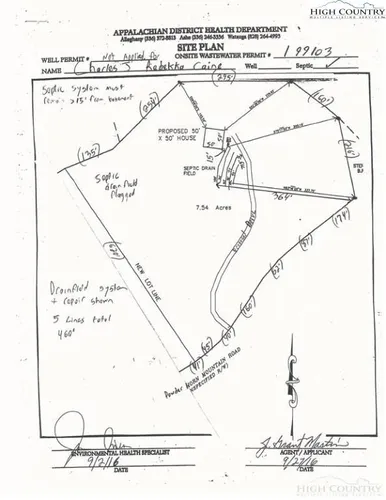 HIGH COUNTRY
MULTIPLE LISTING SERVICE
APPALACHIAN DISTRICT HEALTH DEPARTMENT
Alleghany (336) 372-8813 Ashe (336) 246-3356 Watauga (828) 264-4995
SITE PLAN
WELL PERMIT # Not Applied for ONSITE WASTEWATER PERMIT # 199103
NAME Charles & Rebekka Caine Well Septic ✓
Septic System must
remain >15' from basement
PROPOSED 50'
X 50' HOUSE
50'
50'
15'
SEPTIC DRAIN
FIELD
(135')
Septic
drain field
flagged
364'
(174')
7.54 Acres
(620')
NEW LOT LINE
Drainfield system
+ repair shown
5 Lines total
460'
Powder HORN MOUNTAIN ROAD
ENVIRONMENTAL HEALTH SPECIALIST
AGENT / APPLICANT
9/2/16
9/27/16
DATE
DATE
HIGH COUNTRY